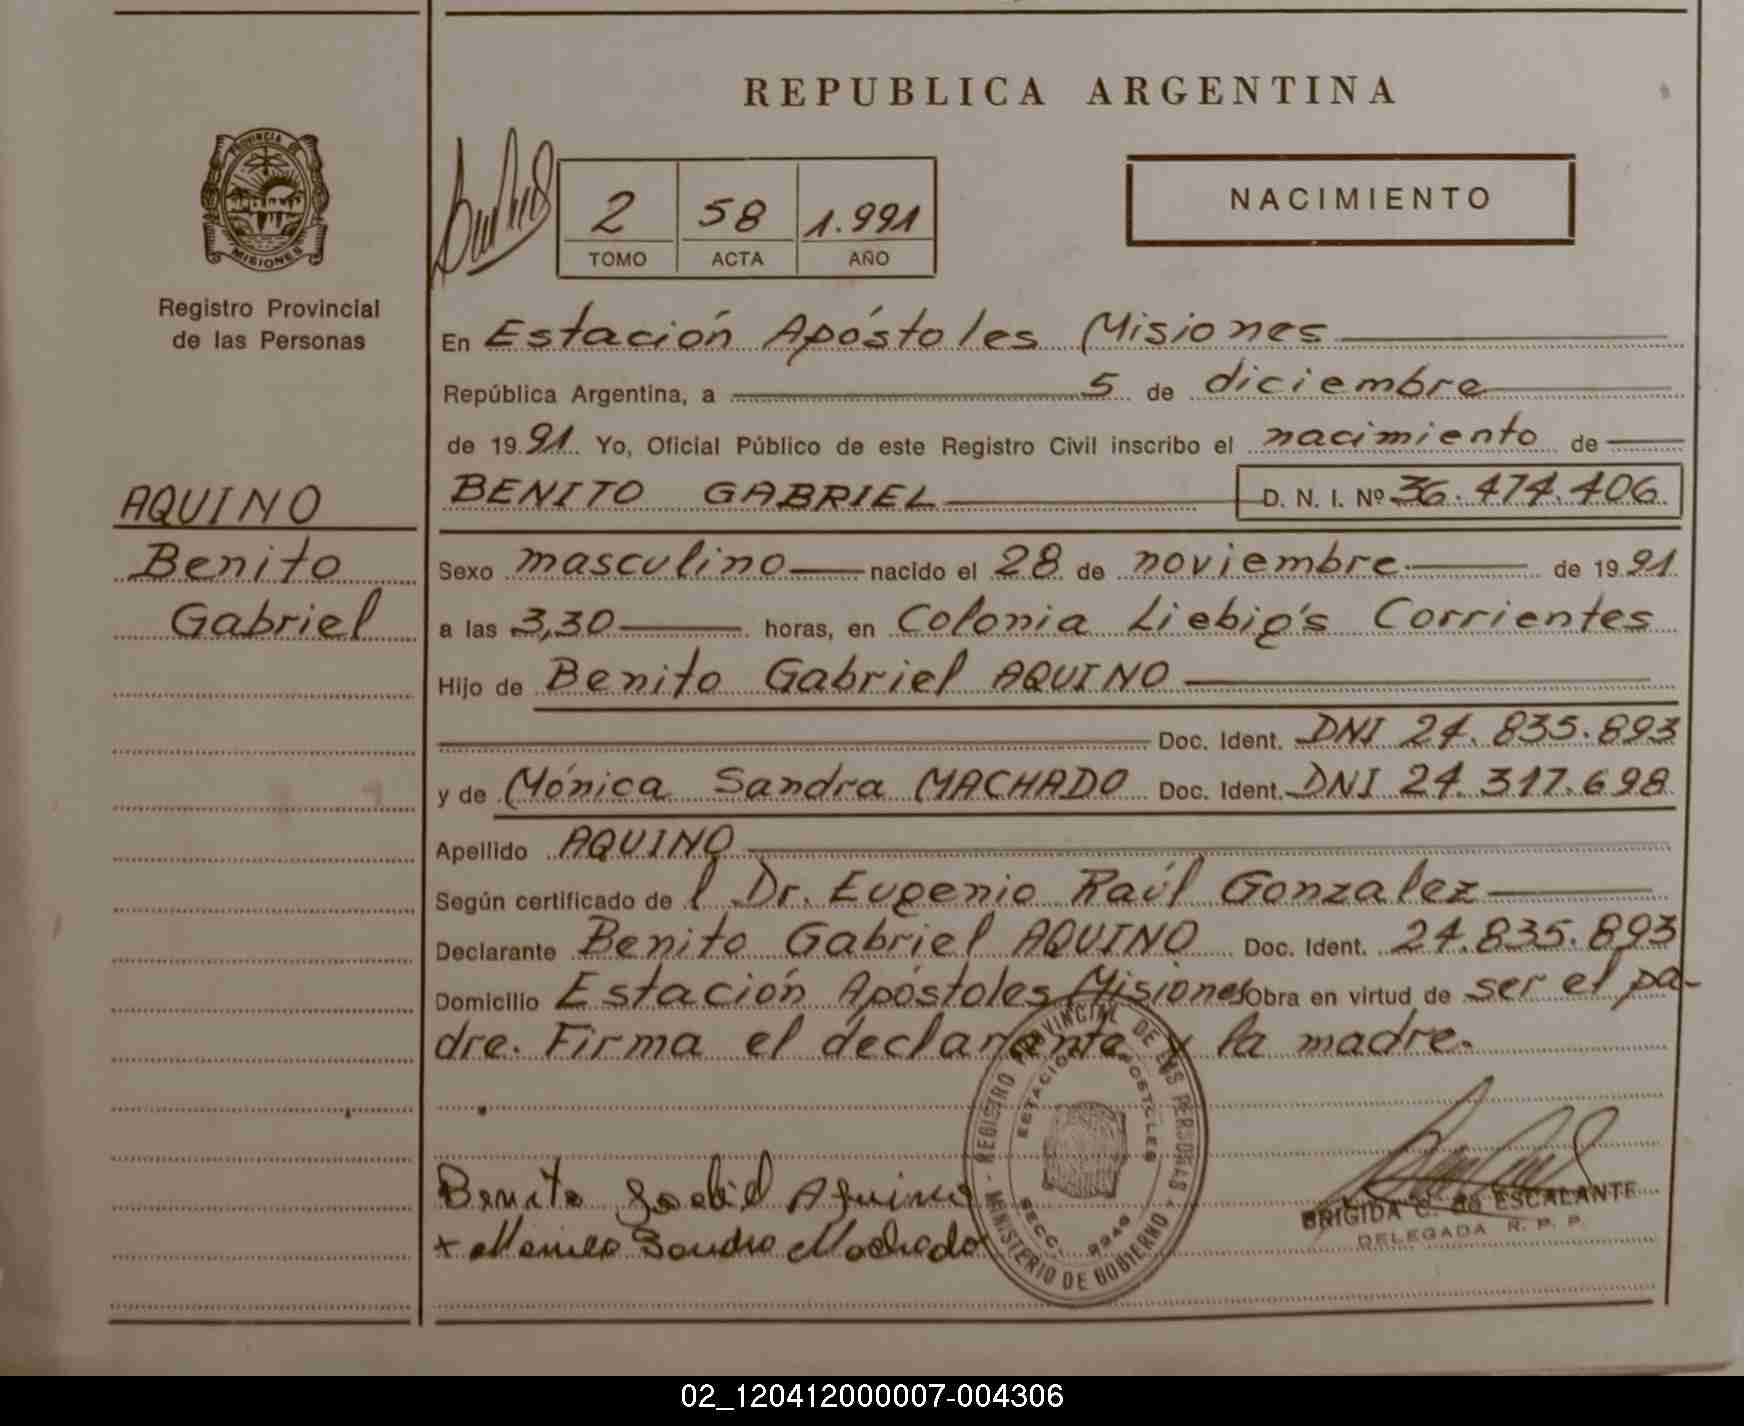 REPUBLICA ARGENTINA
PROVINCIA DE
MISIONES
Registro Provincial
de las Personas
2 58 1.991
TOMO ACTA AÑO
NACIMIENTO
En Estación Apóstoles Misiones
República Argentina, a 5 de diciembre
de 1991 Yo, Oficial Público de este Registro Civil inscribo el nacimiento de
AQUINO
Benito
Gabriel
BENITO GABRIEL D. N. I. Nº 36.474.406
Sexo masculino nacido el 28 de noviembre de 1991
a las 3,30 horas, en Colonia Liebig's Corrientes
Hijo de Benito Gabriel AQUINO
Doc. Ident. DNI 24.835.893
y de Mónica Sandra MACHADO Doc. Ident. DNI 24.317.698
Apellido AQUINO
Según certificado de l Dr. Eugenio Raúl Gonzalez
Declarante Benito Gabriel AQUINO Doc. Ident. 24.835.893
Domicilio Estación Apóstoles Misiones Obra en virtud de ser el pa-
dre. Firma el declarante y la madre.
REGISTRO PROVINCIAL DE LAS PERSONAS
MINISTERIO DE GOBIERNO
ESTACION APOSTOLES
SECC.
Benito Gabriel Aquino
+ Monica Sandra Machado
BRIGIDA C. de ESCALANTE
DELEGADA R. P. P.
02_120412000007-004306